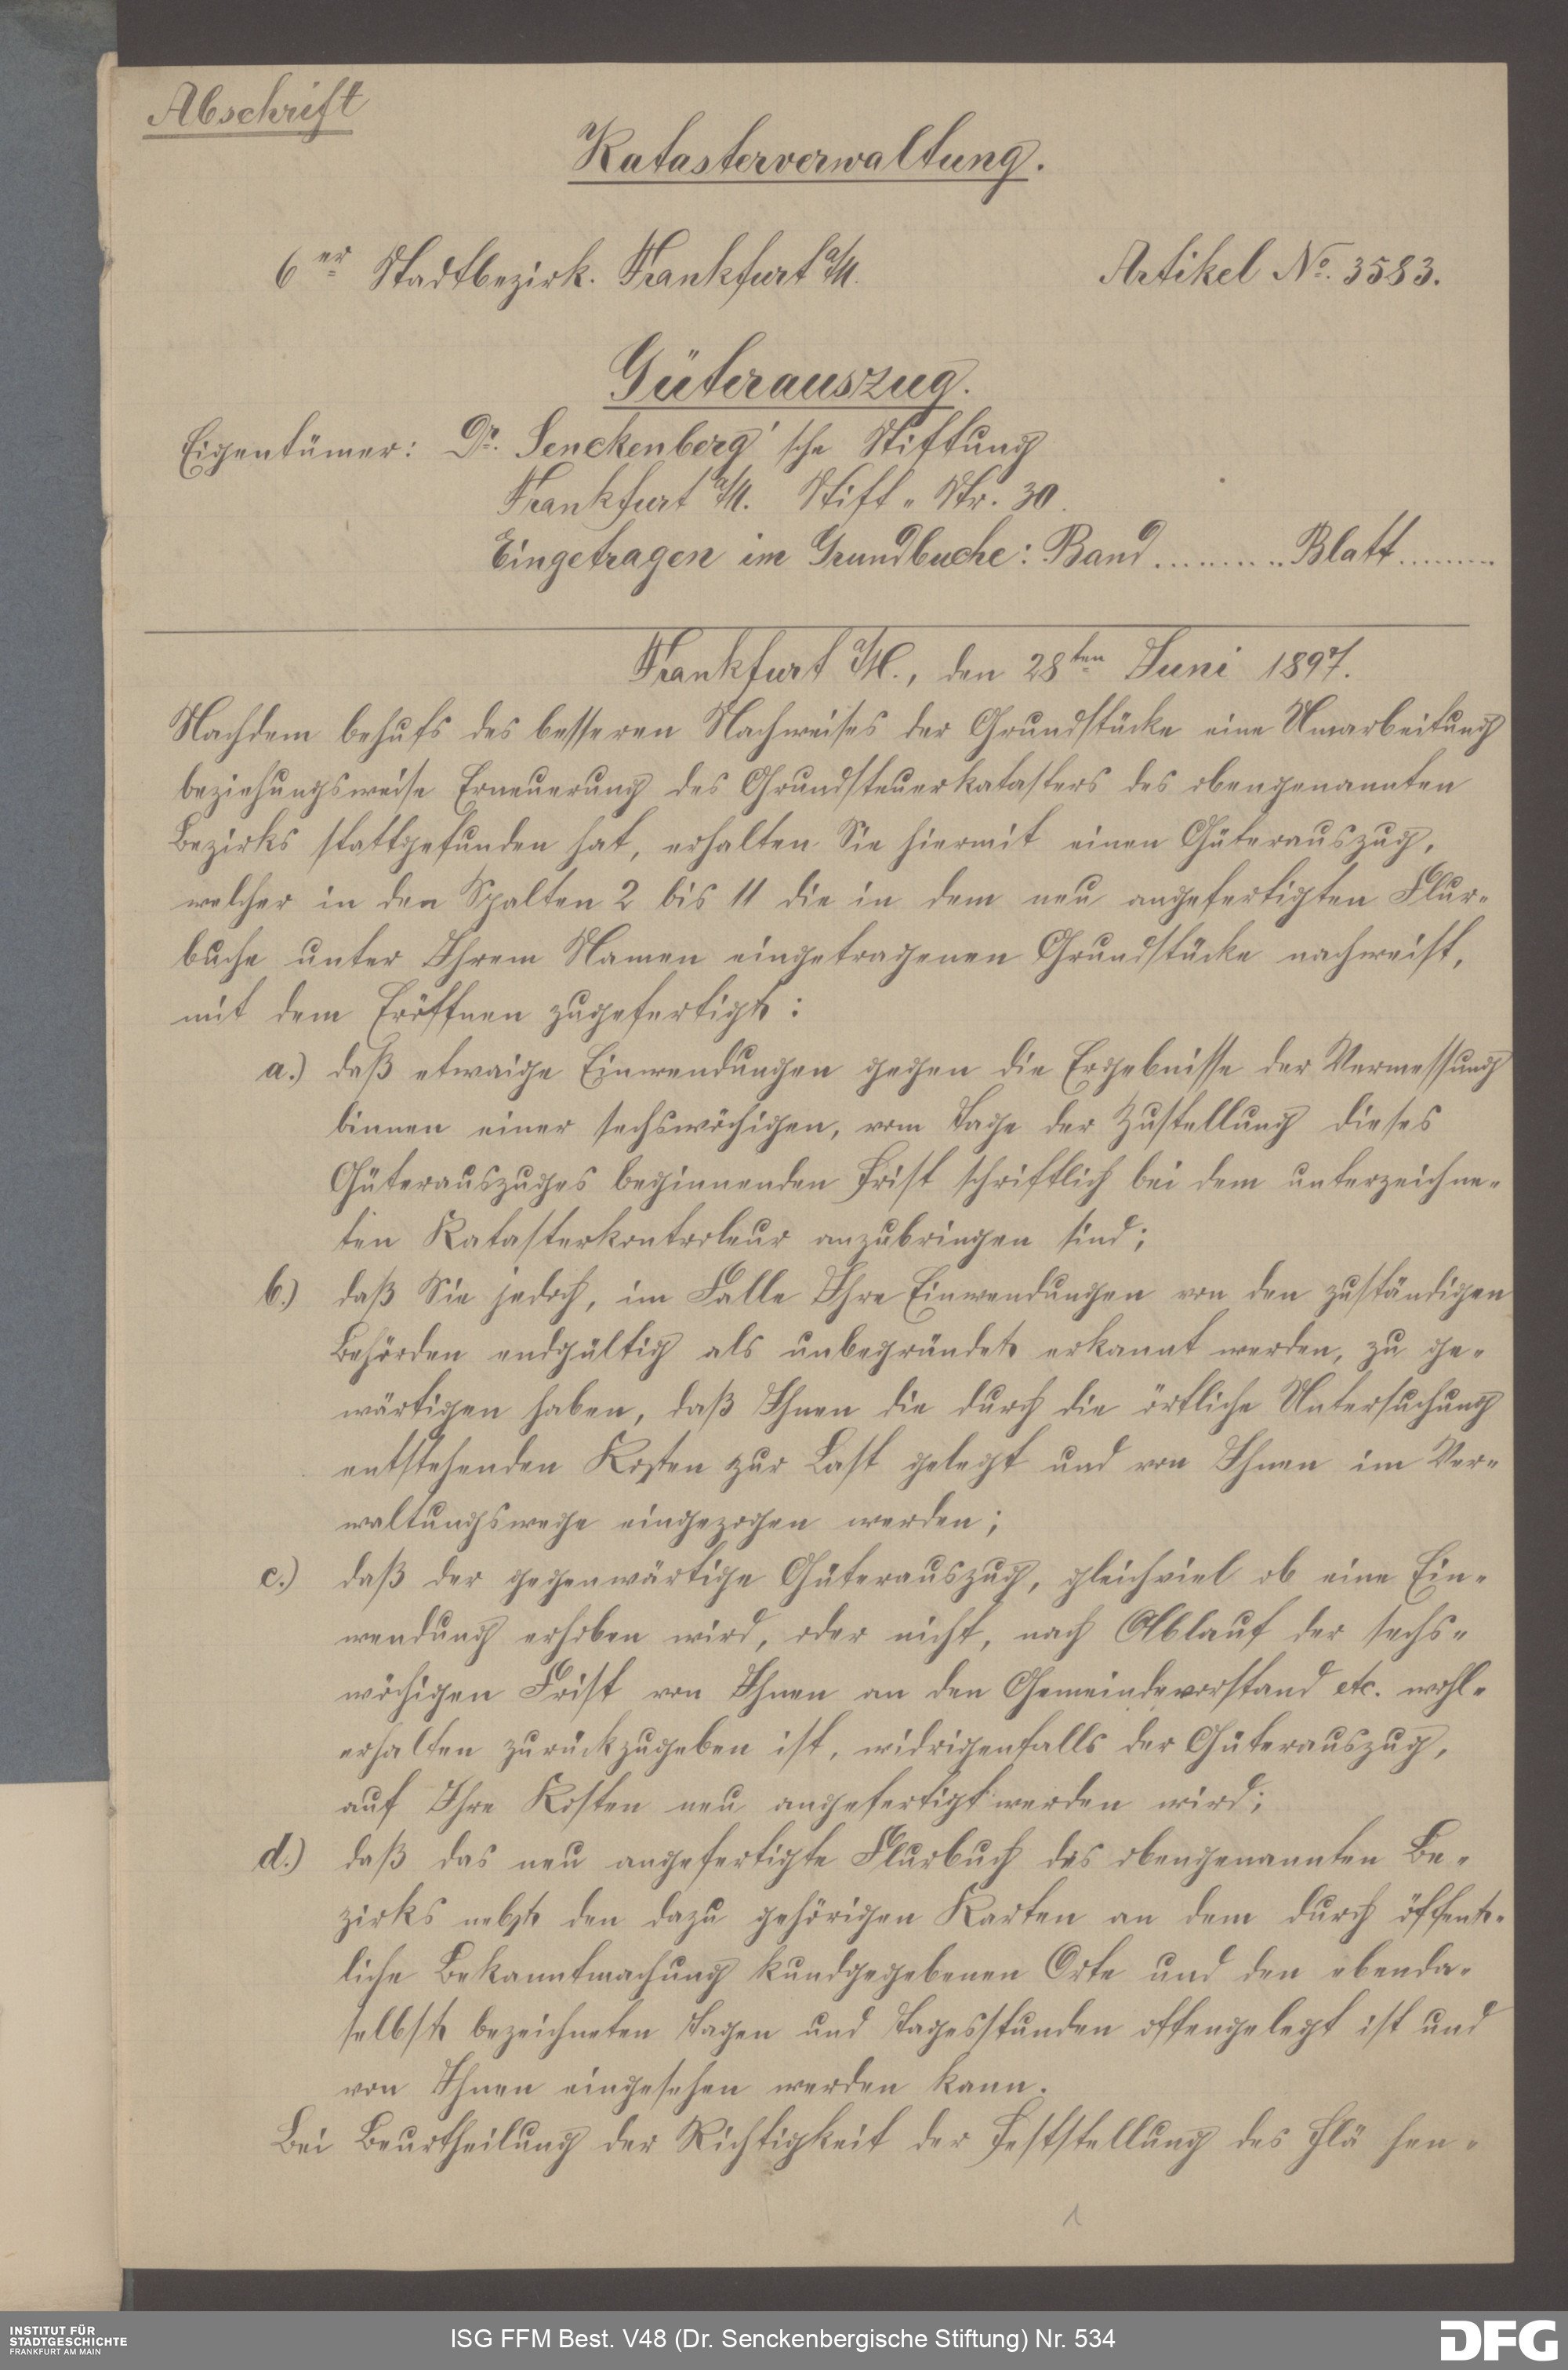 Abschrift
Katasterverwaltung.
6er Stadtbezirk. Frankfurt a/M. Artikel No. 3583.
Güterauszug.
Eigentümer: Dr. Senckenberg'sche Stiftung
Frankfurt a/M. Stift-Str. 30.
Eingetragen im Grundbuche: Band ........... Blatt .........
Frankfurt a/M., den 28ten Juni 1897.
Nachdem behufs des besseren Nachweises der Grundstücke eine Umarbeitung
beziehungsweise Erneuerung des Grundsteuerkatasters des obengenannten
Bezirks stattgefunden hat, erhalten Sie hiermit einen Güterauszug,
welcher in den Spalten 2 bis 11 die in dem neu angefertigten Flur-
buche unter Ihrem Namen eingetragenen Grundstücke nachweist,
mit dem Eröffnen zugefertigt:
a.) daß etwaige Einwendungen gegen die Ergebnisse der Vermessung
binnen einer sechswöchigen, vom Tage der Zustellung dieses
Güterauszuges beginnenden Frist schriftlich bei dem unterzeichne-
ten Katasterkontroleur anzubringen sind;
b.) daß Sie jedoch, im Falle Ihre Einwendungen von den zuständigen
Behörden endgültig als unbegründet erkannt werden, zu ge-
wärtigen haben, daß Ihnen die durch die örtliche Untersuchung
entstehenden Kosten zur Last gelegt und von Ihnen im Ver-
waltungswege eingezogen werden;
c.) daß der gegenwärtige Güterauszug, gleichviel ob eine Ein-
wendung erhoben wird, oder nicht, nach Ablauf der sechs-
wöchigen Frist von Ihnen an den Gemeindevorstand etc. wohl-
erhalten zurückzugeben ist, widrigenfalls der Güterauszug,
auf Ihre Kosten neu angefertigt werden wird;
d.) daß das neu angefertigte Flurbuch des obengenannten Be-
zirks nebst den dazu gehörigen Karten an dem durch öffent-
liche Bekanntmachung kundgegebenen Orte und den ebenda-
selbst bezeichneten Tagen und Tagesstunden offengelegt ist und
von Ihnen eingesehen werden kann.
Bei Beurtheilung der Richtigkeit der Feststellung des Flä hen-
1
INSTITUT FÜR
STADTGESCHICHTE
FRANKFURT AM MAIN
ISG FFM Best. V48 (Dr. Senckenbergische Stiftung) Nr. 534
DFG